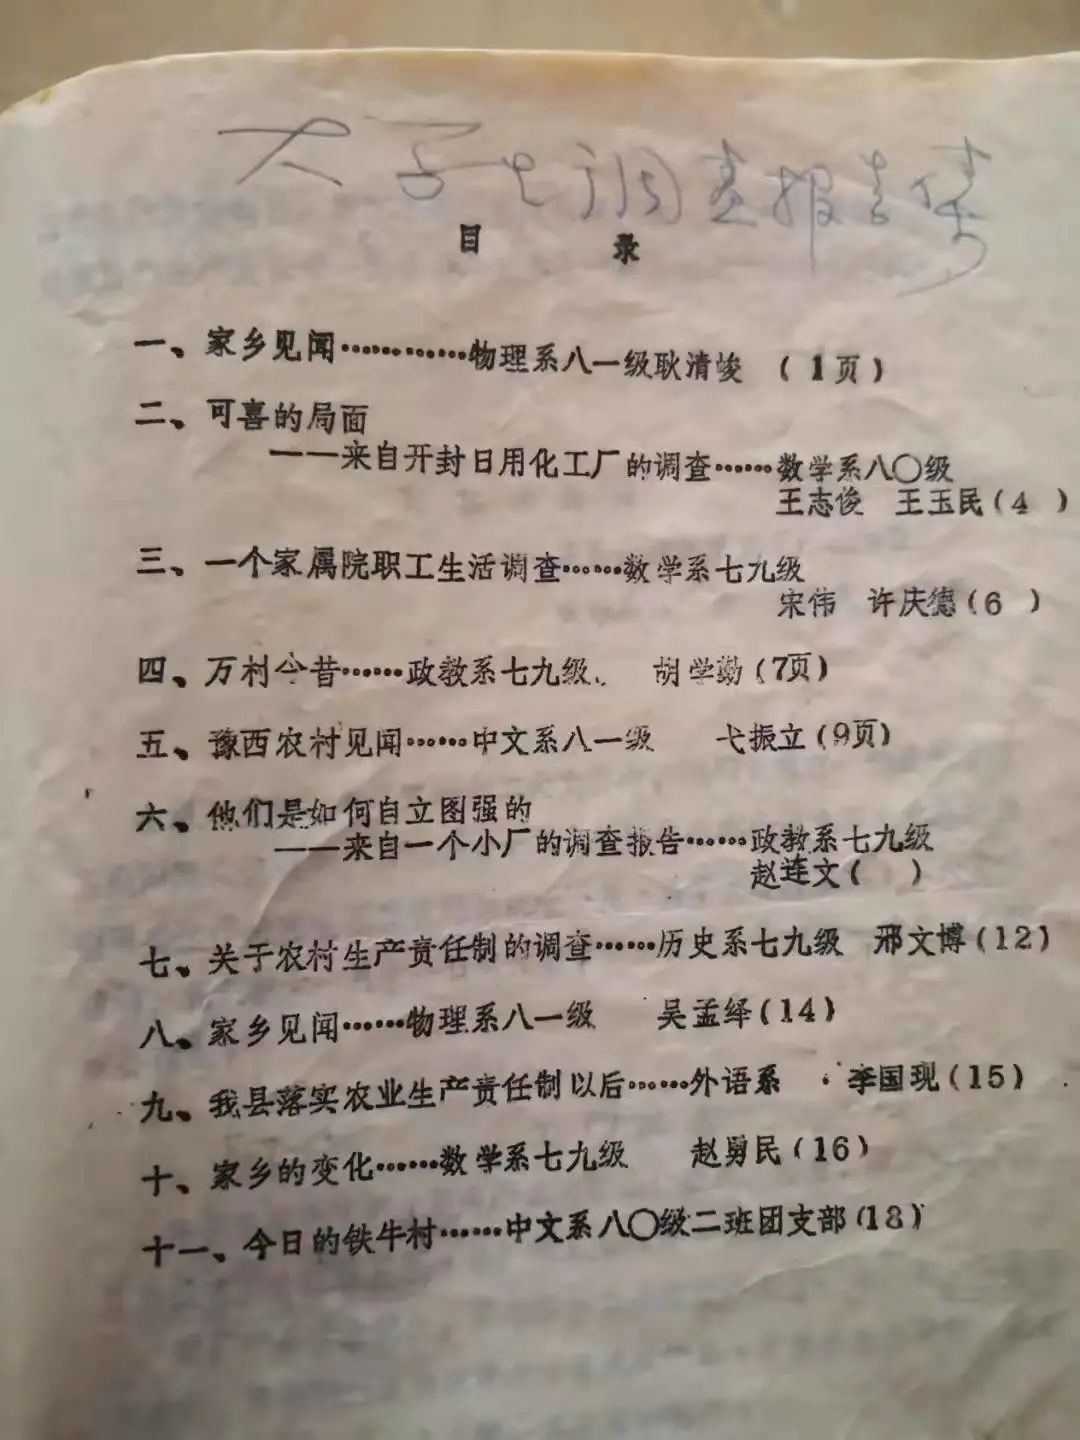 大学生调查报告集
目 录
一、家乡见闻…………物理系八一级耿清峻 (1页)
二、可喜的局面
——来自开封日用化工厂的调查……数学系八〇级
王志俊 王玉民(4 )
三、一个家属院职工生活调查……数学系七九级
宋伟 许庆德(6 )
四、万村今昔……政教系七九级. 胡学勤(7页)
五、豫西农村见闻……中文系八一级 弋振立(9页)
六、他们是如何自立图强的
——来自一个小厂的调查报告……政教系七九级
赵连文( )
七、关于农村生产责任制的调查……历史系七九级 邢文博(12)
八、家乡见闻……物理系八一级 吴孟绎(14)
九、我县落实农业生产责任制以后……外语系 李国现(15)
十、家乡的变化……数学系七九级 赵勇民(16)
十一、今日的铁牛村……中文系八〇级二班团支部(18)